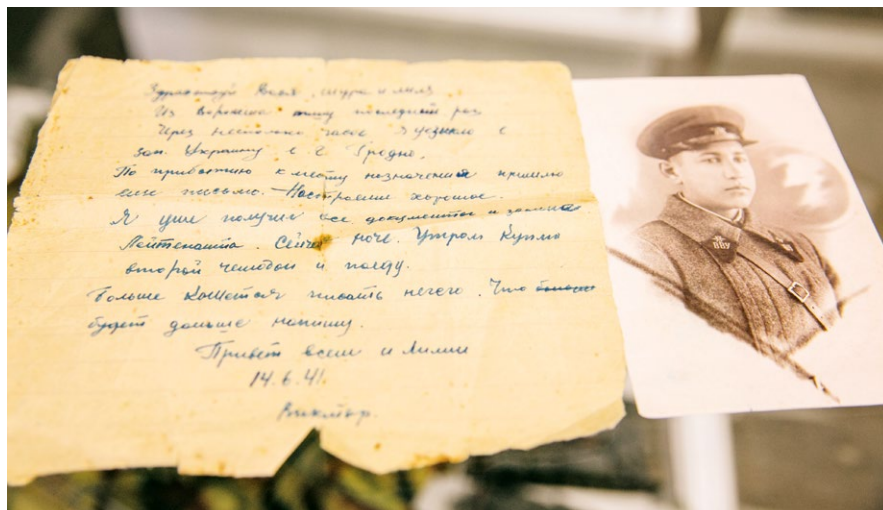 Здравствуй Вася, Шура и Лиля
Из Воронежа пишу последний раз
Через несколько часов я уезжаю в
зап. Украину в г. Гродно.
По прибытию к месту назначения пришлю
вам письмо. — Настроение хорошое.
Я уже получил все документы и звание
Лейтенанта. Сейчас ноче. Утром Куплю
второй чемодан и поеду.
Больше кажется писать нечего. Что
будет дальше напишу.
Привет всем и Лили
14.6.41.
Виктор.
ВВУ